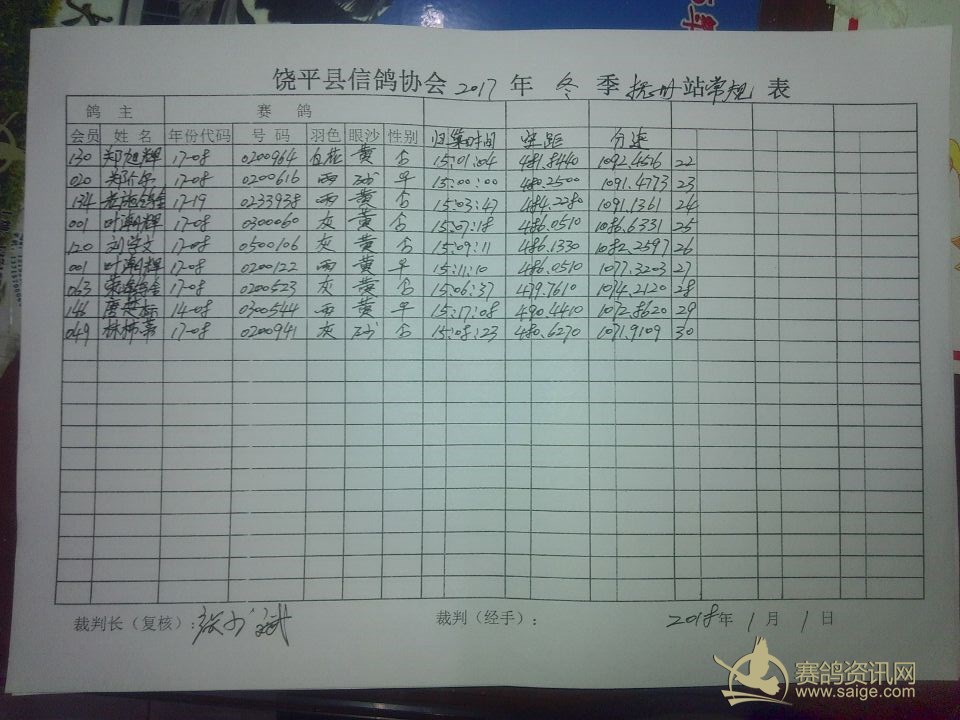 饶平县信鸽协会 2017 年 冬 季 抚州 站 常规 表
鸽 主 赛 鸽
会员 姓 名 年份代码 号 码 羽色 眼沙 性别 归巢时间 空距 分速
130 郑旭辉 17-08 0200964 白花 黄 否 15:01:04 481.8440 1092.4516 22
020 17-08 0200616 雨 砂 平 15:00:00 480.2500 1091.4773 23
134 17-19 0233938 雨 黄 否 15:03:47 484.2280 1091.1361 24
001 叶潮辉 17-08 0300060 灰 黄 否 15:07:18 486.0510 1086.6331 25
120 刘学文 17-08 0500106 灰 黄 否 15:09:11 486.1330 1082.2597 26
001 叶潮辉 17-08 0200122 雨 黄 平 15:11:10 486.0510 1077.3203 27
063 17-08 0200523 灰 黄 否 15:06:37 479.7610 1074.2120 28
146 唐楚标 14-08 0300544 雨 黄 平 15:17:08 490.4410 1072.8620 29
049 17-08 0200941 灰 砂 否 15:08:23 480.6270 1071.9109 30
裁判长（复核）： 裁判（经手）： 2018 年 1 月 1 日
赛鸽资讯网
www.saige.com